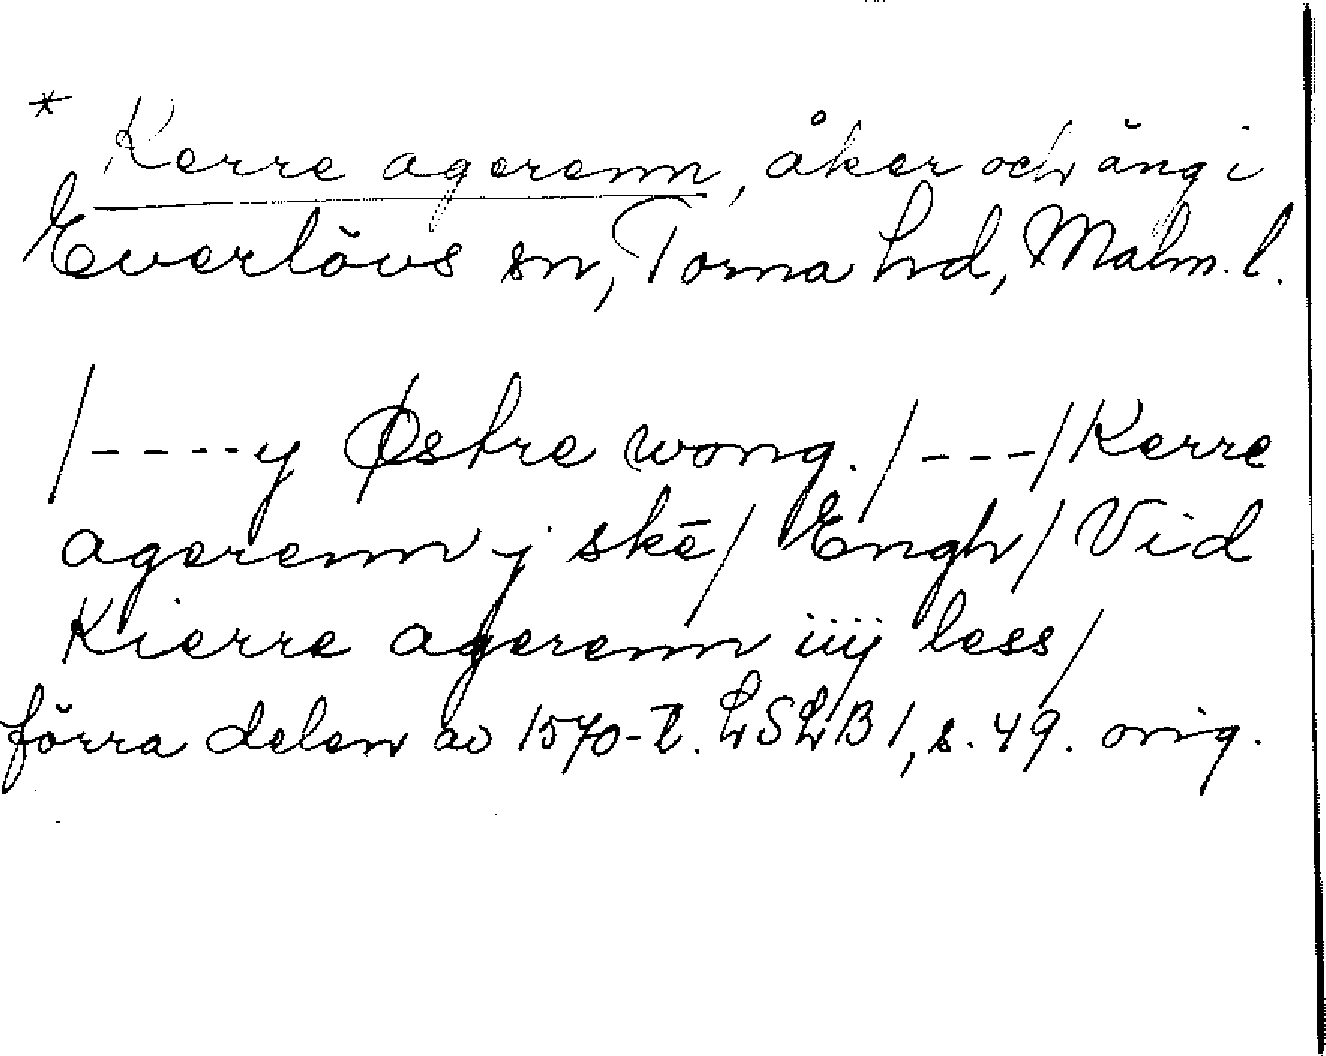 * Kerre agerenn, åker och äng i
Everlövs sn, Torna hd, Malm. l.
/----y Østre wong./---/Kerre
agerenn j skē/ Engh/ Vid
Kierre agerenn iiij less/
förra delen av 1570-t. LSLB 1, s. 49. orig.